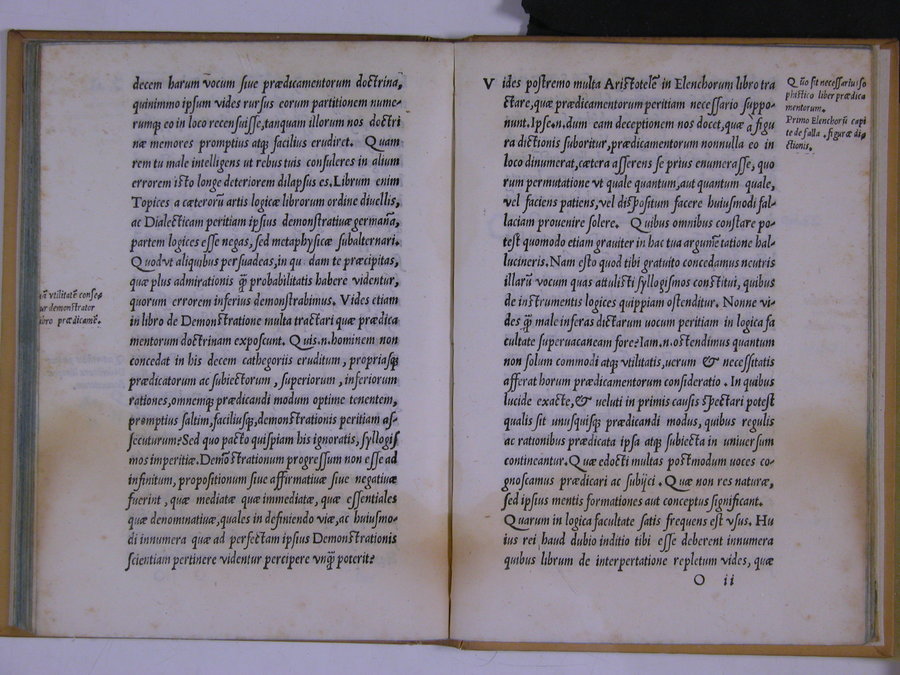 decem harum vocum siue prædicamentorum doctrina,
quinimmo ipsum vides rursus eorum partitionem nume-
rumqꝫ eo in loco recensuisse, tanquam illorum nos doctri
næ memores promptius atqꝫ facilius erudiret. Quam
rem tu male intelligens ut rebus tuis consuleres in alium
errorem isto longe deteriorem dilapsus es. Librum enim
Topices a cæterorũ artis logicæ librorum ordine diuellis,
ac Dialecticam peritiam ipsius demonstratiuæ germanã,
partem logices esse negas, sed metaphysicæ subalternari.
Quod vt aliquibus persuadeas, in qu dam te præcipitas,
quæ plus admirationis q̃ probabilitatis habere videntur,
quorum errorem inferius demonstrabimus. Vides etiam
in libro de Demonstratione multa tractari quæ prædica
mentorum doctrinam exposcunt. Quis.n.hominem non
concedat in his decem cathegoriis eruditum, propriasqꝫ
prædicatorum ac subiectorum, superiorum, inferiorum
rationes, omnemqꝫ prædicandi modum optime tenentem,
promptius saltim, faciliusqꝫ, demonstrationis peritiam as-
secuturum? Sed quo pacto quispiam his ignoratis, syllogis
mos imperitiæ. Demõstrationum progressum non esse ad
infinitum, propositionum siue affirmatiuæ siue negatiuæ
fuerint, quæ mediatæ quæ immediatæ, quæ essentiales
quæ denominatiuæ, quales in definiendo viæ, ac huiusmo-
di innumera quæ ad perfectam ipsius Demonstrationis
scientiam pertinere videntur percipere vnq̃ poterit?
utilitatẽ conse
demonstrator
prædicamẽ.
Vides postremo multa Aristotelẽ in Elenchorum libro tra
ctare, quæ prædicamentorum peritiam necessario suppo-
nunt. Ipse.n.dum eam deceptionem nos docet, quæ a figu
ra dictionis suboritur, prædicamentorum nonnulla eo in
loco dinumerat, cætera asserens se prius enumerasse, quo
rum permutatione vt quale quantum, aut quantum quale,
vel faciens patiens, vel dispositum facere huiusmodi fal-
laciam prouenire solere. Quibus omnibus constare po-
test quomodo etiam grauiter in hac tua argumẽtatione hal-
lucineris. Nam esto quod tibi gratuito concedamus neutris
illarũ vocum quas attulisti syllogismos constitui, quibus
de instrumentis logices quippiam ostenditur. Nonne vi-
des q̃ male inferas dictarum uocum peritiam in logica fa
cultate superuacaneam fore? Iam.n.ostendimus quantum
non solum commodi atqꝫ vtilitatis, uerum & necessitatis
afferat horum prædicamentorum consideratio. In quibus
lucide exacte, & ueluti in primis causis spectari potest
qualis sit unusquisqꝫ prædicandi modus, quibus regulis
ac rationibus prædicata ipsa atqꝫ subiecta in uniuersum
contineantur. Quæ edocti multas postmodum uoces co-
gnoscamus prædicari ac subijci. Quæ non res naturæ,
sed ipsius mentis formationes aut conceptus significant.
Quarum in logica facultate satis frequens est vsus. Hu
ius rei haud dubio inditio tibi esse deberent innumera
quibus librum de interpertatione repletum vides, quæ
O ii
Quõ sit necessarius so
phistico liber prædica
mentorum.
Primo Elenchorũ capi
te de falla. figuræ di-
ctionis.